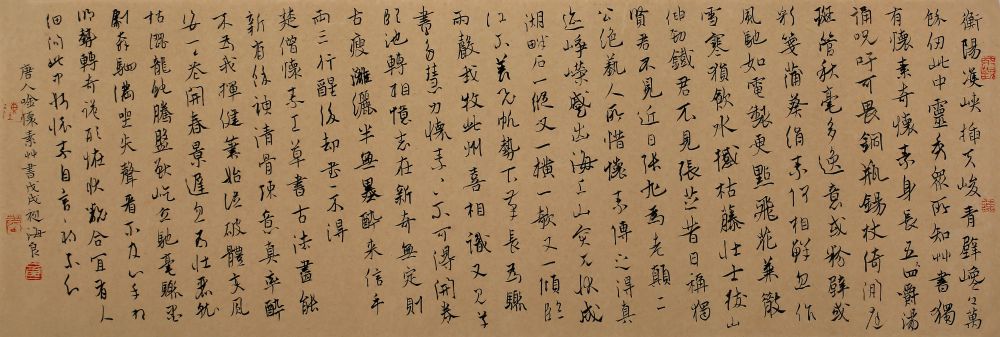 衡陽雙峽插天峻青壁巉巉萬
餘仞此中靈秀眾所知艸書獨
有懷素奇懷素身長五尺四嚼湯
誦咒吁可畏銅瓶錫杖倚閒庭
斑管秋毫多逸意或粉壁或
彩箋蒲葵絹素何相鮮忽作
風馳如電掣更點飛花兼散
雪寒猿飲水撼枯藤壯士拔山
伸勁鐵君不見張芝昔日稱獨
賢君不見近日張旭為老顛二
公絕藝人所惜懷素傳之得真
迹崢嶸蹙出海上山突兀狀成
湖畔石一縱又一橫一欹又一傾臨
江不羨飛帆勢下筆長為驟
雨聲我牧此州喜相識又見草
書多慧力懷素懷素不可得開卷
臨池轉相憶志在新奇無定則
古瘦灕驪半無墨醉來信手
兩三行醒後却書書不得
楚僧懷素工草書古法盡能
新有餘神清骨竦意真率醉
來為我揮健筆始從破體變風
姿一一花開春景遲忽為壯麗就
枯澀龍蛇騰盤獸屹立馳毫驟墨
劇奔駟滿坐失聲看不及心手相
師勢轉奇詭形怪狀翻合宜有人
細問此中妙懷素自言初不知
唐人咏懷素艸書戊戌祝海良